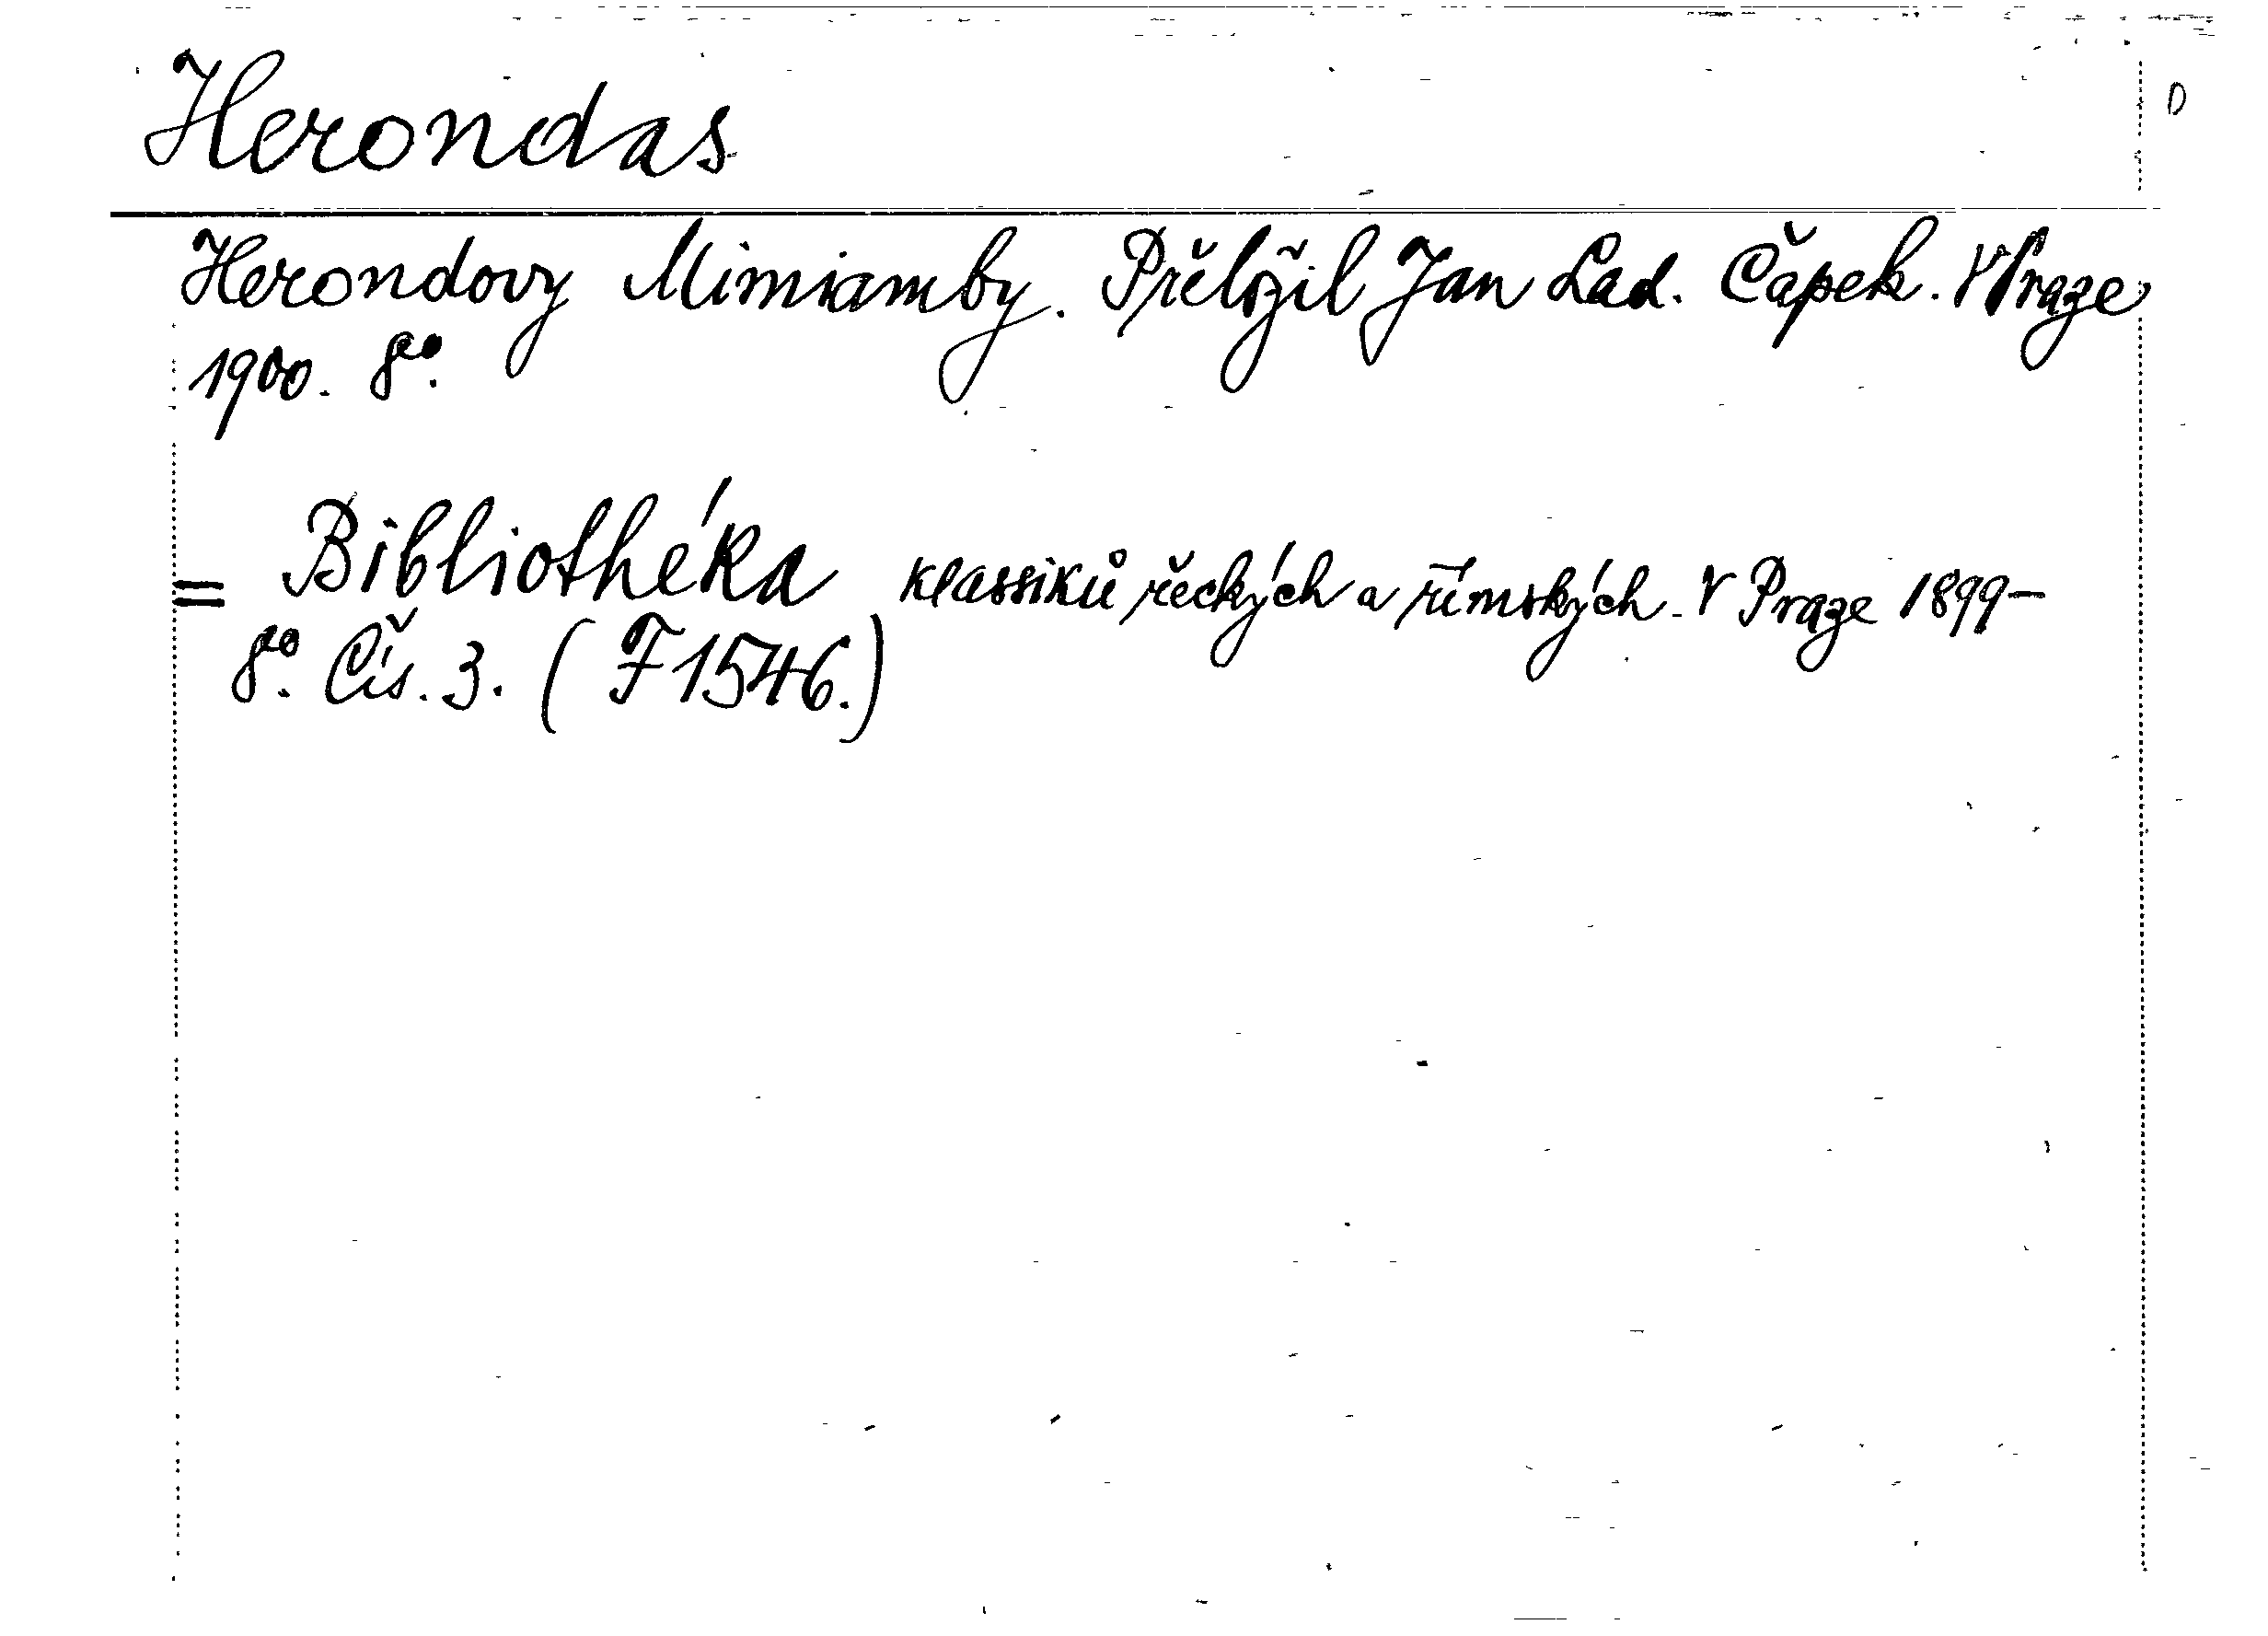 Herondas
D
Herondovy Mimiamby. Přeložil Jan Lad. Čapek. V Praze
1900. 8º.
= Bibliothéka klassiků řeckých a římských. V Praze 1899-
8º. Čís. 3. (F 1546.)